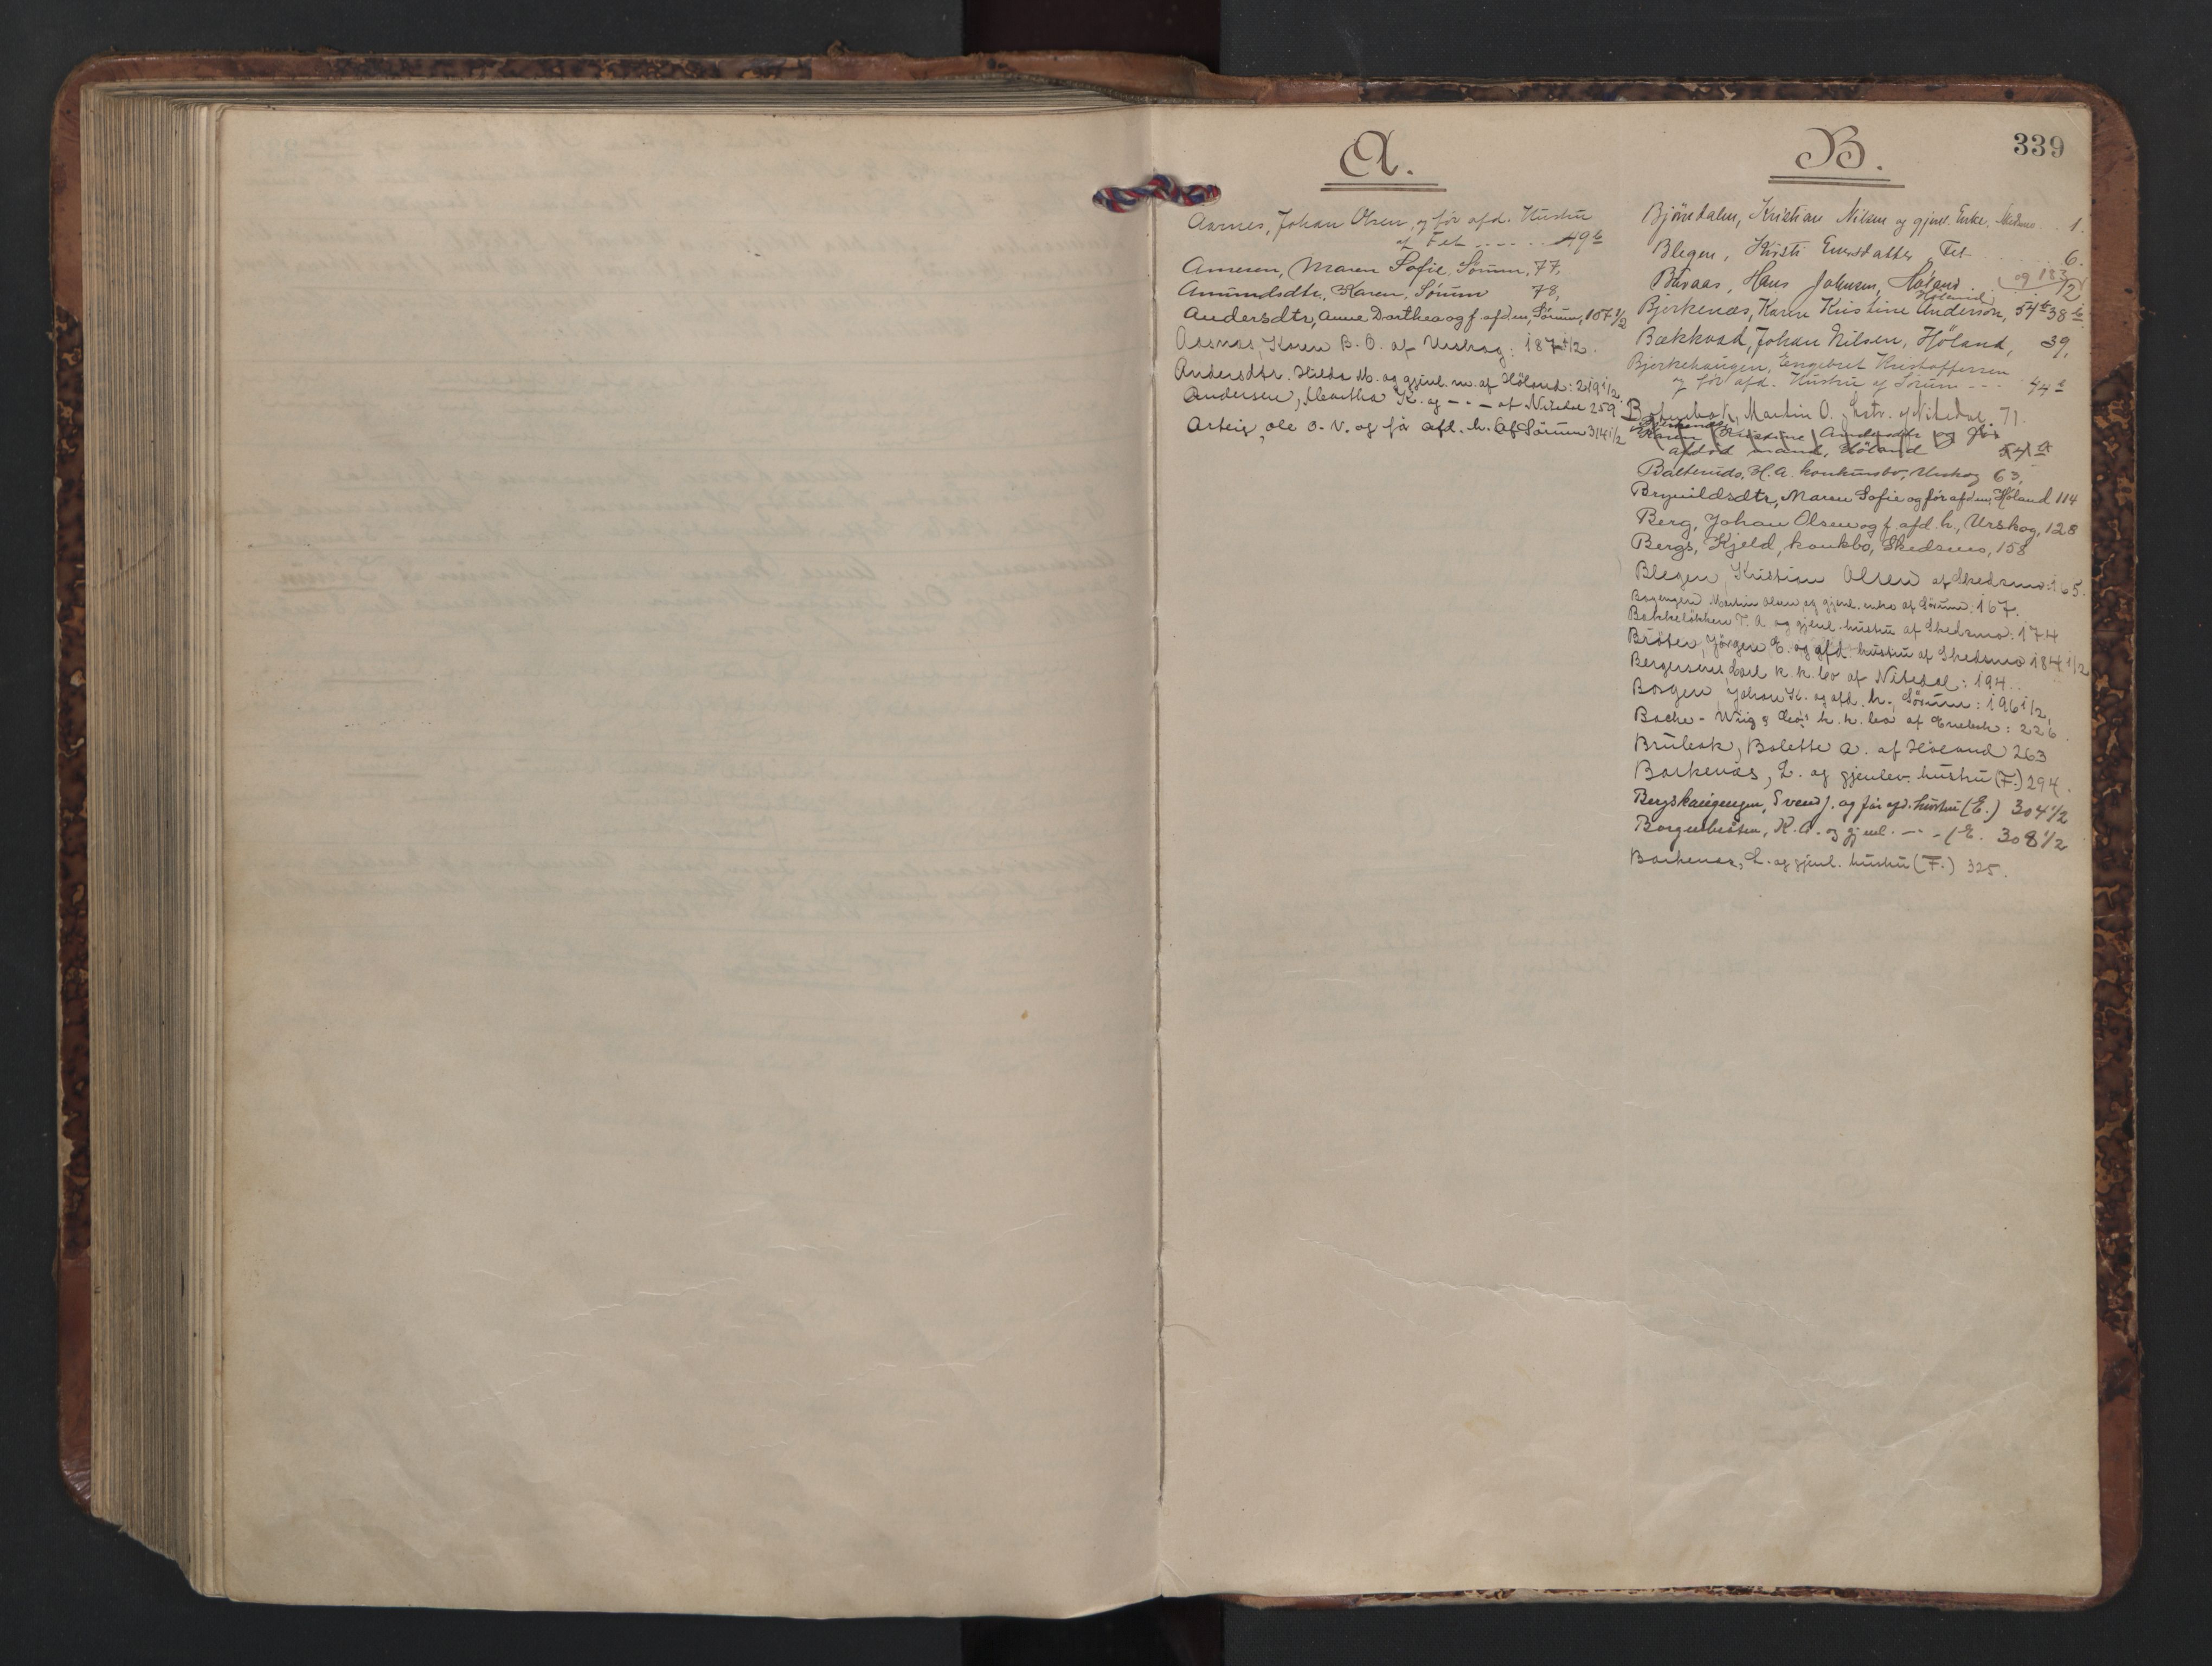 A.
Aarnes, Johan Olsen, og før afd. Hustru
af Fet ...... 49 b
Arnesen, Maren Sofie, Sørum, 77,
Amundsdtr, Karen, Sørum 78,
Andersdtr, Anne Dorthea og f. afd m, Sørum, 107 1/2
Aasnæs, Karen B. O. af Urskog: 187 1/2.
Andersdtr. Hilda M. og gjenl. m. af Höland: 219 1/2.
Andersen, Martha K. og - " - af Nitedal 259
Arteig, Ole O. V. og før afd. h. af Sörum 314 1/2
B.
339
Björedalen, Kristian Nilsen og gjenl. Enke, Skedsmo .. 1.
Blegen, Kirsti Enersdatter, Fet 6.
og 183/2
Baraas, Hans Johnsen, Höland
Höland
Bjerkenæs, Karen Kristine Anderson, 54 b 38 b
Bækkvad, Johan Nilsen, Höland, 39,
Bjerkehaugen, Engebret Kristoffersen
og før afd. Hustru af Sørum --- 44 b
Martin O., af Nitedal, 71.
Bjerkenæs
Karen Kristine Andersdtr og før
afdød mand, Höland 54 a
Balterud, H. A. konkursbo, Urskog 63,
Brynildsdtr, Maren Sofie og før afd m, Höland 114
Berg, Johan Olsen og f. afd. h., Urskog, 128
Bergs, Kjeld, konkbo, Skedsmo, 158
Blegen, Kristian Olsen af Skedsmo: 165.
Bogengen Martin Olsen og gjenl. enke af Sörum: 167.
Bakkelökken T. A. og gjenl. hustru af Skedsmo: 174
Bråten, Jörgen E. og afd. hustru af Skedsmo 184 1/2
Bergersens Carl k. k. bo af Nitedal: 194.
Borgen, Johan K. og afd. h., Sörum: 196 1/2,
Bache-Wiig's k. k. bo af Enebak: 226.
Brubak, Bolette A. af Höland 263
Borkenæs, L. og gjenlev. hustru (F.) 294.
Bergskaugengen, Svend J. og før afd. hustru (E.) 304 1/2
Borgenbråten, K. A. og gjenl. - " - (E. 308 1/2
Borkenæs, L. og gjenl. hustru (F.) 325.